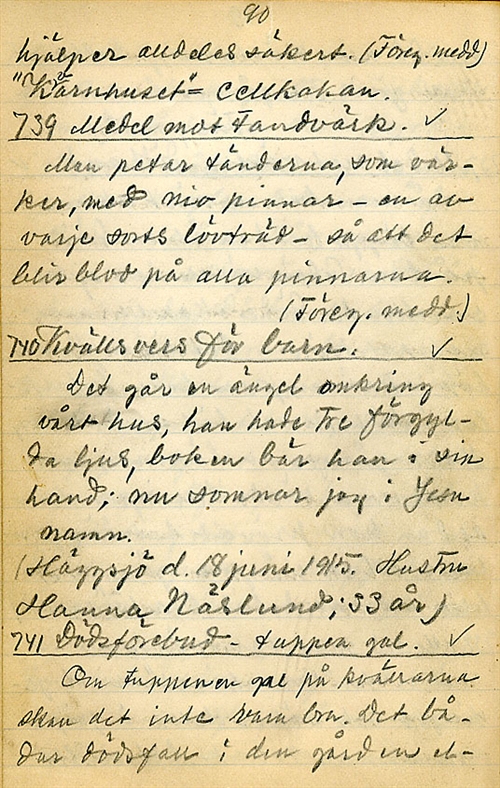 90
hjälper alldeles säkert. (Föreg. medd)
"Kärnhuset" = cellkakan.
739 Medel mot Tandvärk. ✓
Man petar tänderna, som vär-
ker, med nio pinnar - en av
varje sorts lövträd - så att det
blir blod på alla pinnarna.
(Föreg. medd.)
740 Kvällsvers för barn. ✓
Det går en ängel omkring
vårt hus, han hade tre förgyl-
da ljus, boken bär han i sin
hand; nu somnar jag i Jesu
namn.
(Häggsjö d. 18 juni 1915. Hustru
Hanna Näslund; 33 år)
741 Dödsförebud - tuppen gal. ✓
Om tuppen en gal på kvällarna
skall det inte vara bra. Det bå-
dar dödsfall i den gården el-